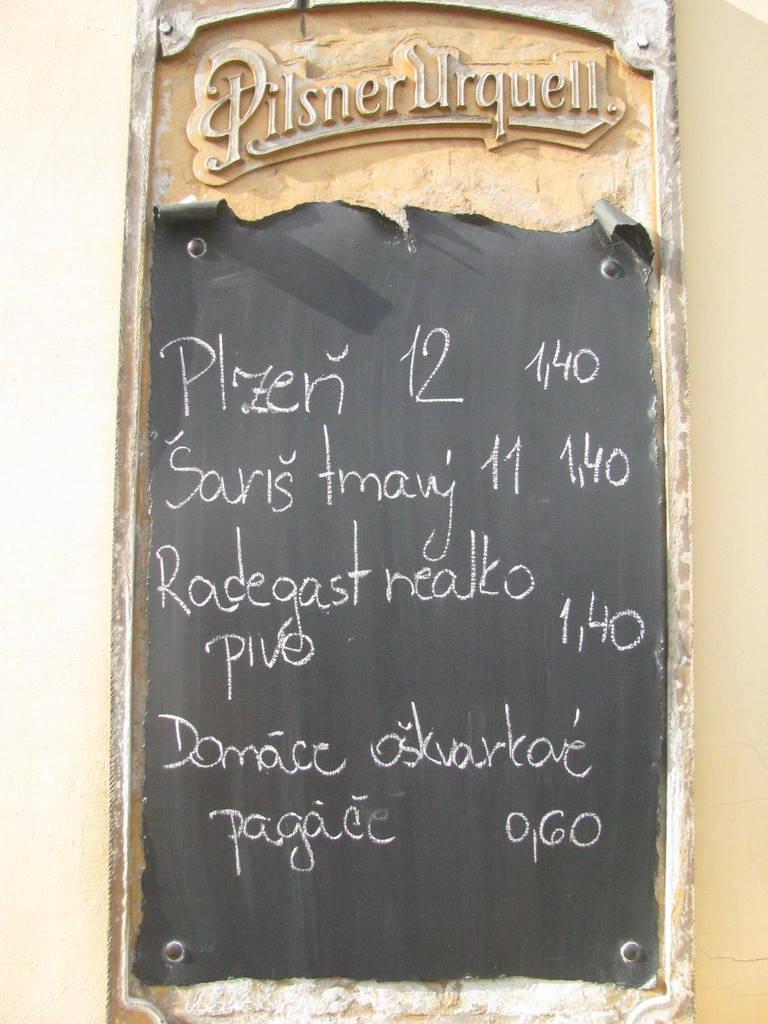 Pilsner Urquell.
Plzeň 12 1,40
Šariš tmavý 11 1,40
Radegast nealko
pivo 1,40
Domáce oškvarkové
pagáče 0,60